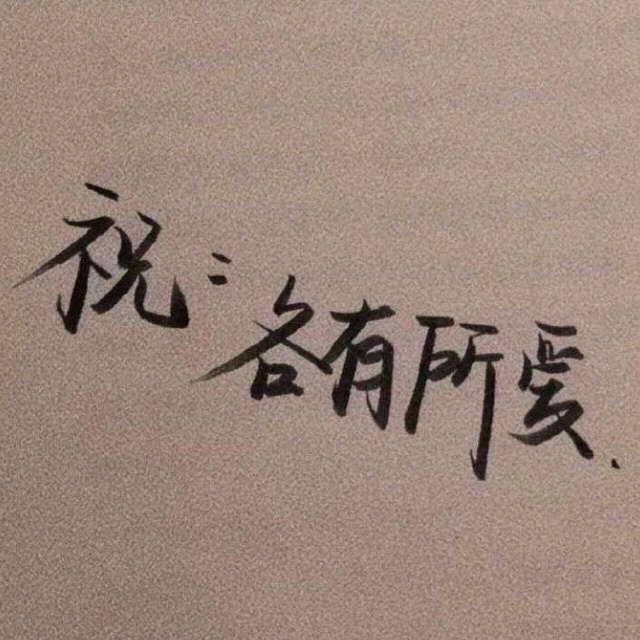 祝：各有所爱.